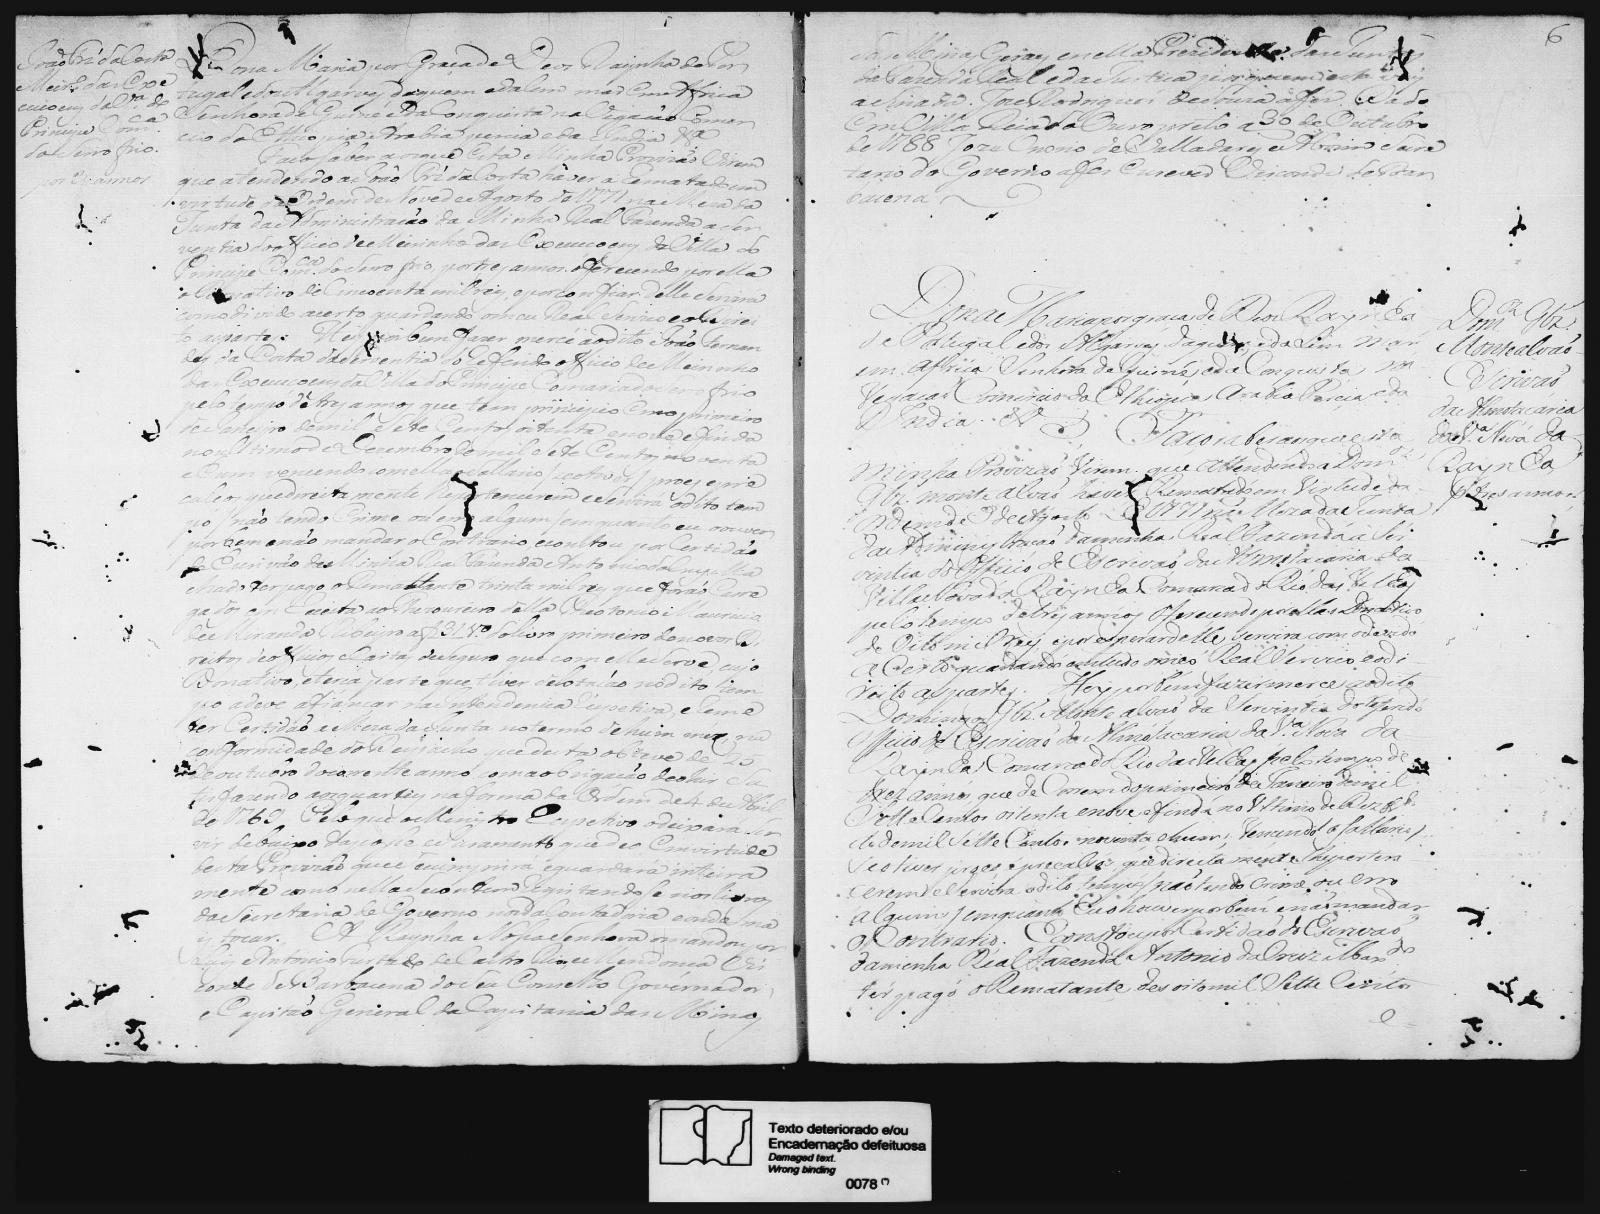 João Frz da Costa
Meir.º das Exe
cucoens da V.ª do
Principe Com.ca
do Serro frio.
por 3 annos
Dona Maria por Graça de Deos Raynha de Por
tugal e dos Algarves daquem e dalem mar em Affrica
Senhora de Guiné e da Conquista Navegação Comer
cio da Ethiopia Arabia Percia e da India &ª
Faço saber aos que esta Minha Provizão virem
que atendendo a João Frz da Costa haver a Rematado em
virtude da Ordem de Nove de Agosto de 1771 na Meza da
Junta da Administração da Minha Real Fazenda a ser
ventia do officio de Meirinho das Execucoens da Villa do
Principe Com.ca do Serro frio, por tres annos, oferecendo por ella
o donativo de Cincoenta mil reis, e por confiar delle servirá
como divido acerto guardando em tudo o meu Real serviço e o direi
to as partes: Hei por bem fazer mercê ao dito João Fernan
des da Costa da serventia do referido officio de Meirinho
das Execucoens da Villa do Principe Comarca do Serro frio
pelo tempo de tres annos que tem principio em o primeiro
de Janeiro de mil e sete Centos oitenta e nove e finda
no ultimo de Dezembro de mil e sete Centos noventa
e hum vencendo com elle o sallario / se o tiver / proes e pre
calços que direitamente lhe pertencerem e servirá o dito tem
po / não tendo crime ou erro algum / em quanto eu o houver
por bem e não mandar o Contrario e constou por Certidão
do Escrivão da Minha Real Fazenda Antonio da Cruz Ma
chado ter pago o Rematante trinta mil reis que ficão Carre
gados em receita ao Thezoureiro della Antonio Mauricio
de Miranda Ribeiro a f 31 v.º do Livro primeiro de novos Di
reitos de officios e Carta de seguro que com elle serve cujo
donativo, e terça parte que tiver de lotação no dito tem
po a deve afiançar na intendencia respectiva, e reme
ter Certidão a Meza da Junta no termo de hum mez na
conformidade do
de outubro do corrente anno com a obrigação de os hir Sa
tisfazendo aos quarteis na forma da Ordem de 4 de Abril
de 1763 Pelo que o Menistro Respectivo o deixará Ser
vir debaixo da posse e juramento que deo Em virtude
desta Provizão que se cumprirá e guardará inteira
mente como nella se contem Registandose nos livros
da Secretaria do Governo nos da Contadoria e onde ma
is tocar. A Raynha Nossa Senhora o mandou por
Luis Antonio Furtado de Castro Rio e Mendonca Vis
conde de Barbacena do seu Conselho Governador
e Capitão General da Capitania das Minas
6
das Minas Geraes e nella Prezidente das Juntas
da Fazenda Real e da Justiça
a assinada. Joze Rodrigues de Souza a fez. Dada
em Villa Rica do Ouro preto a 30 de Outubro
de 1788 Joze Onorio de Valladares e Aboim Secre
tario do Governo a fes escrever Visconde de Bar
bacena
Dona Maria por graça de Deos Raynha
de Portugal e dos Algarves daquem e dalem mar
em Africa Senhora de Guiné, e da Conquista na
vegacao Comercio da Ethiopia Arabia Percia e da
India &ª
Faço saber aos que esta
Minha Provizão virem que attendendo a Dom
Glz. monte alvão haver Rematado em virtude da
ordem de 9 de Agosto de 1771 na Meza da Junta
da Administracao da minha Real Fazenda a Ser
ventia do officio de Escrivão da Almotacaria da
Villa Nova da Raynha Comarca do Rio das Velhas
pelo tempo de tres annos Oferecendo por ella o Donativo
de Oito mil reis e por esperar delle servira com o devido
acerto guardando em tudo o meo Real Serviço e o di
reito as partes. Hey por bem fazer merce ao dito
Domingos Glz. Monte alvão da serventia do referido
officio de Escrivão da Almotacaria da V.ª Nova da
Raynha Comarca do Rio das Velhas pelo tempo de
tres annos que de Correm do primeiro de Janeiro de mil
Sette Centos oitenta e nove e finda no Ultimo de Dezebr
o de mil Sette Centos noventa e hum, vencendo o sallario /
se o tiver / proes e precalços que direitamente lhe perten
cerem e servira o dito tempo / não tendo crime ou erro
algum / emquanto Eu o houver por bem e não mandar
o Contrario. Constou por Certidão do Escrivão
da minha Real Fazenda Antonio da Cruz Machdo
ter pago o Rematante des oito mil Sette Centos
e
Dom.os Glz.
Montealvão
Escrivão
da Almotacaria
da V.ª Nova da
Raynha
p.r tres annos
Texto deteriorado e/ou
Encadernação defeituosa
Damaged text.
Wrong binding
0078 (*)